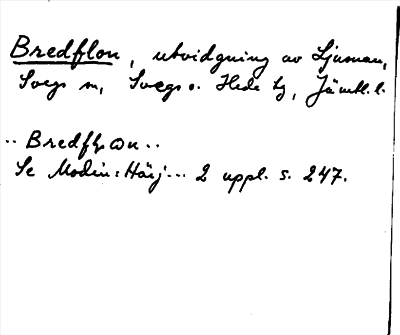 Bredflon, utvidgning av Ljusnan,
Svegs sn, Svegs o. Hede tg, Jämtl. l.
.. Bredflωn ..
Se Modin: Härj... 2 uppl. s. 247.